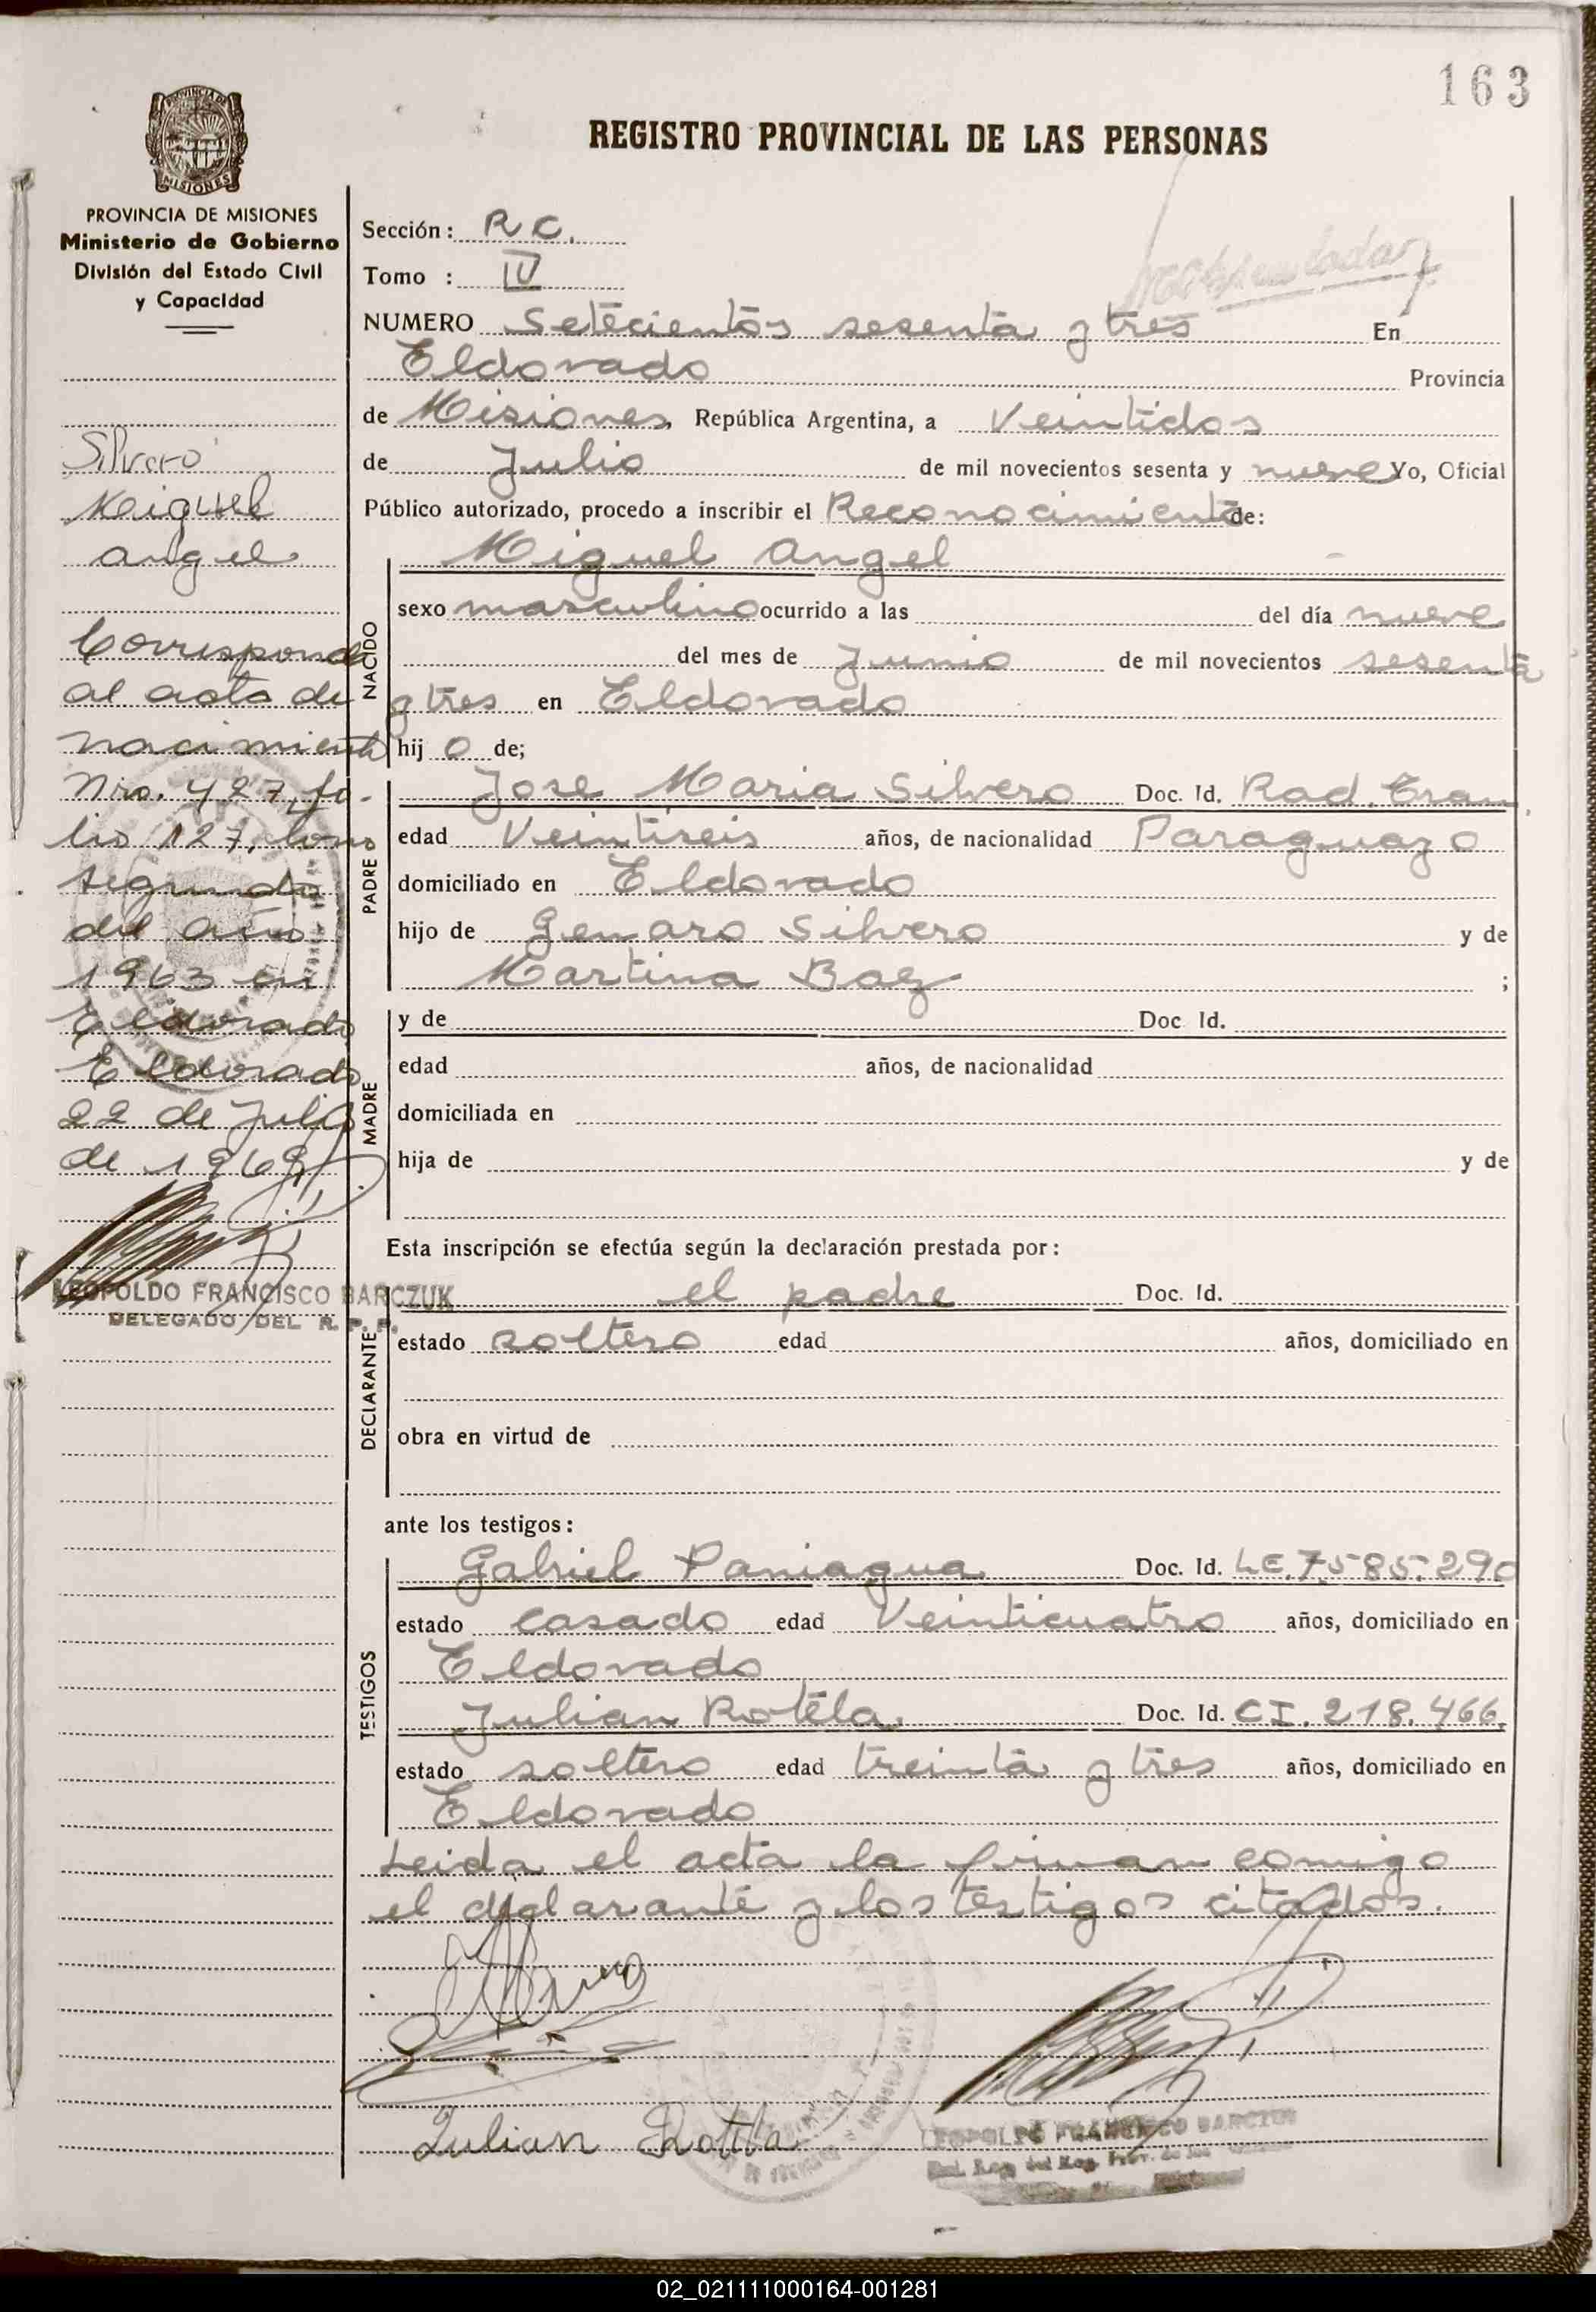 163
REGISTRO PROVINCIAL DE LAS PERSONAS
PROVINCIA DE MISIONES
MISIONES
PROVINCIA DE MISIONES
Ministerio de Gobierno
División del Estado Civil
y Capacidad
Silvero
Miguel
angel
Corresponde
al acta de
nacimiento
Nro. 427, fo-
lio 127, tomo
segundo
del año
1963 en
Eldorado
Eldorado
22 de Julio
de 1969
LEOPOLDO FRANCISCO BARCZUK
DELEGADO DEL R. P. P.
Sección: R C.
Tomo : IV
NUMERO Setecientos sesenta y tres En
Eldorado Provincia
de Misiones, República Argentina, a Veintidos
de Julio de mil novecientos sesenta y nueve Yo, Oficial
Público autorizado, procedo a inscribir el Reconocimiento de:
NACIDO
Miguel Angel
sexo masculino ocurrido a las del día nueve
del mes de Junio de mil novecientos sesenta
y tres en Eldorado
hij o de;
PADRE
Jose Maria Silvero Doc. Id. Rad. Tram.
edad Veintiseis años, de nacionalidad Paraguayo
domiciliado en Eldorado
hijo de Genaro Silvero y de
Martina Baez ;
MADRE
y de Doc. Id.
edad años, de nacionalidad
domiciliada en
hija de y de
Esta inscripción se efectúa según la declaración prestada por:
DECLARANTE
el padre Doc. Id.
estado soltero edad años, domiciliado en
obra en virtud de
ante los testigos:
TESTIGOS
Gabriel Paniagua Doc. Id. LE.7.585.290
estado casado edad Veinticuatro años, domiciliado en
Eldorado
Julian Rotela. Doc. Id. CI. 218.466.
estado soltero edad treinta y tres años, domiciliado en
Eldorado
Leida el acta la firman comigo
el declarante y los testigos citados.
Julian Rotela
LEOPOLDO FRANCISCO BARCZUK
02_021111000164-001281